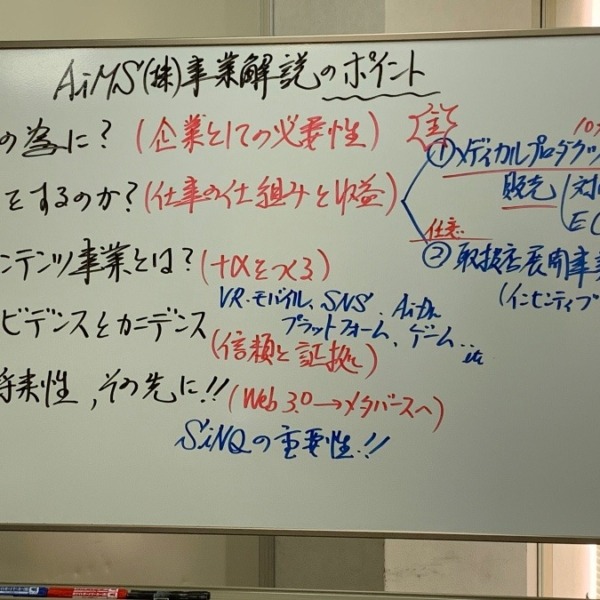 AiMS(株)事業解説のポイント
の為に?(企業としての必要性)
をするのか?(仕事の仕組みと収益)
①メディカルプロダクツ
販売(対
EC
任意
②取扱店展開事業
(インセンティブ
ンテンツ事業とは?(+αをつくる)
VR・モバイル、SNS、
プラットフォーム、ゲーム…etc
ビデンスとカニデンス
(信頼と証拠)
将来性,その先に!!(Web3.0→メタバースへ)
SiNQの重要性!!